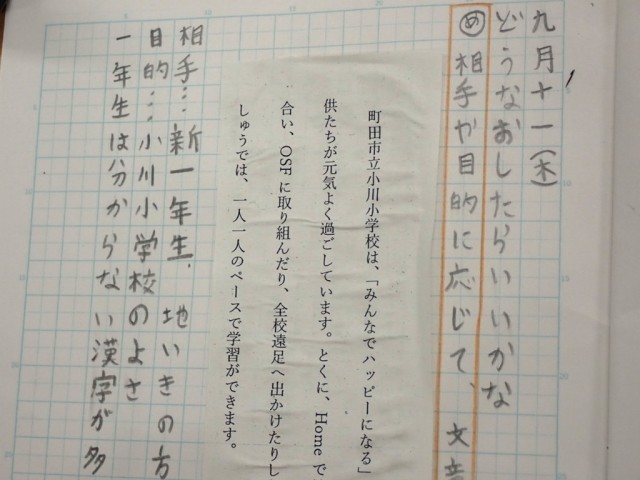 九月十一(木)
どうなおしたらいいかな
め 相手や目的に応じて、文章
町田市立小川小学校は、「みんなでハッピーになる」
供たちが元気よく過ごしています。とくに、Homeで
合い、OSFに取り組んだり、全校遠足へ出かけたりし
しゅうでは、一人一人のペースで学習ができます。
相手…新一年生、地いきの方
目的…小川小学校のよさ
一年生は分からない漢字が多